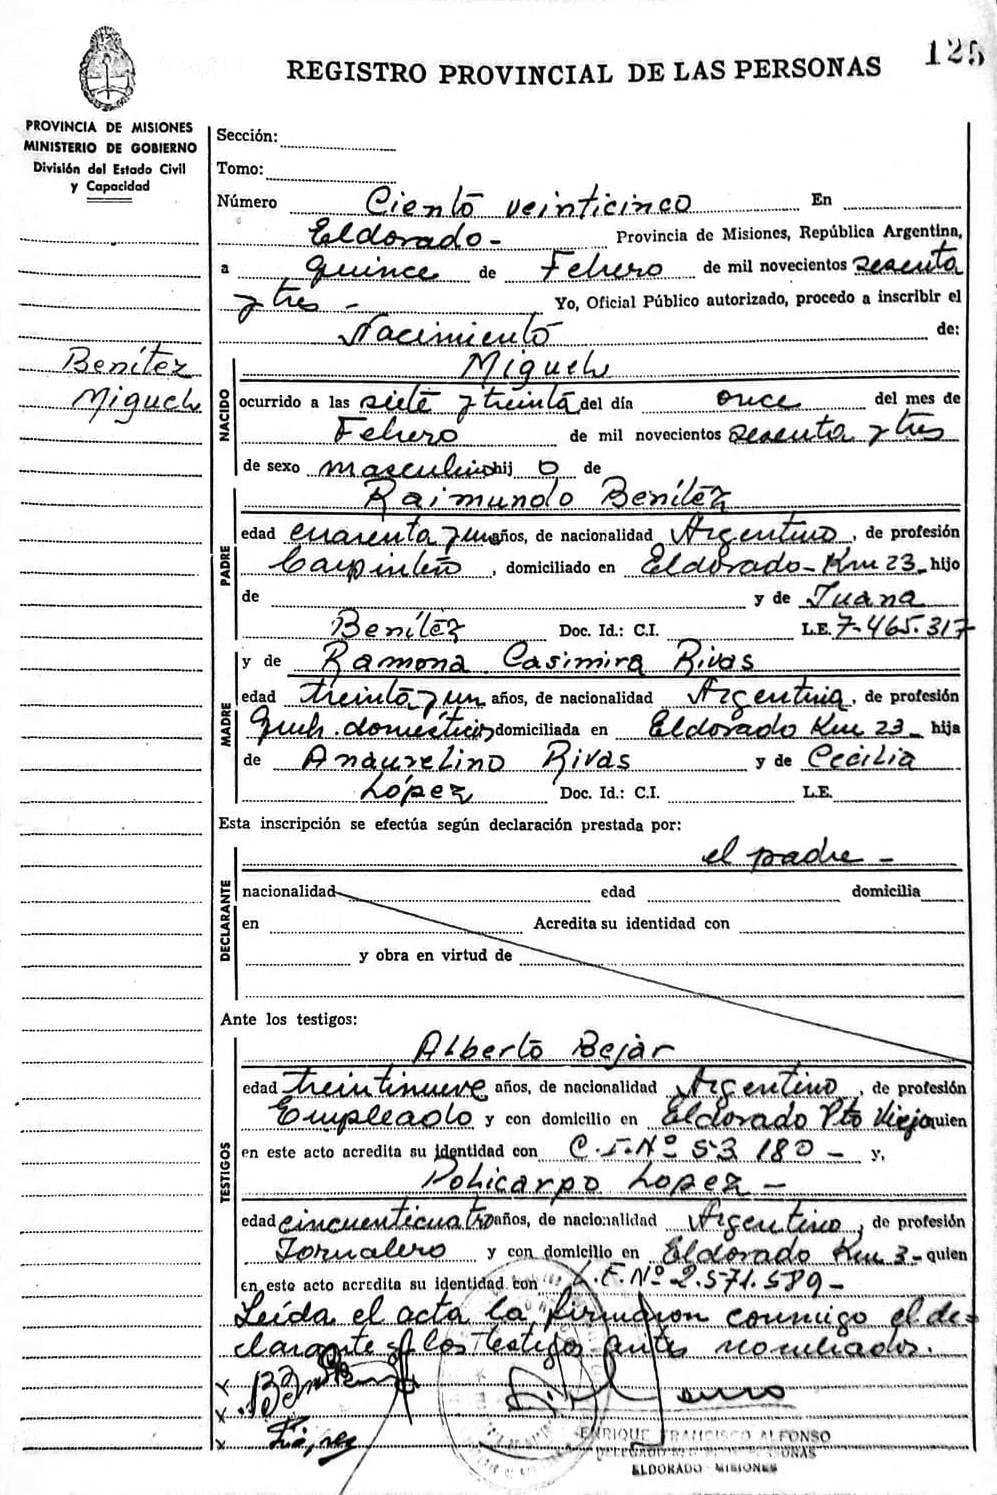 125
REGISTRO PROVINCIAL DE LAS PERSONAS
PROVINCIA DE MISIONES
MINISTERIO DE GOBIERNO
División del Estado Civil
y Capacidad
Benítez
Miguel
Sección:
Tomo:
Número Ciento veinticinco En
Eldorado - Provincia de Misiones, República Argentina,
a quince de Febrero de mil novecientos sesenta
y tres - Yo, Oficial Público autorizado, procedo a inscribir el
Nacimiento de:
Miguel
NACIDO
ocurrido a las siete y treinta del día once del mes de
Febrero de mil novecientos sesenta y tres
de sexo masculino hij o de
Raimundo Benítez
PADRE
edad cuarenta y un años, de nacionalidad Argentino, de profesión
Carpintero, domiciliado en Eldorado - Km 23 - hijo
de y de Juana
Benítez Doc. Id.: C.I. L.E. 7.465.317
y de Ramona Casimira Rivas
MADRE
edad treinta y un años, de nacionalidad Argentina, de profesión
Queh. domésticos domiciliada en Eldorado Km 23 - hija
de Anaurelino Rivas y de Cecilia
López Doc. Id.: C.I. L.E.
Esta inscripción se efectúa según declaración prestada por:
el padre -
DECLARANTE
nacionalidad edad domicilia
en Acredita su identidad con
y obra en virtud de
Ante los testigos:
Alberto Bejar
TESTIGOS
edad treintinueve años, de nacionalidad Argentino, de profesión
Empleado y con domicilio en Eldorado Pto Viejo quien
en este acto acredita su identidad con C.I. Nº 53 180 - y,
Policarpo Lopez -
edad cincuenticuatro años, de nacionalidad Argentino, de profesión
Jornalero y con domicilio en Eldorado Km 3 - quien
en este acto acredita su identidad con L.E. Nº 2.571.589 -
Leída el acta la firmaron conmigo el de=
clarante y los testigos antes nombrados.
x
x
x López
ENRIQUE FRANCISCO ALFONSO
DELEGADO REG. PERSONAS
ELDORADO - MISIONES